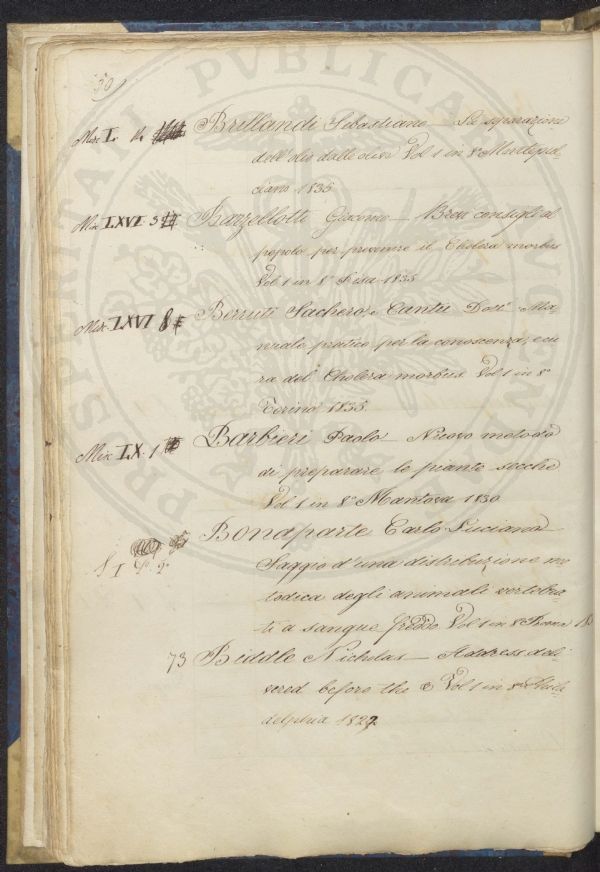 50
Misc. L. Brillandi Sebastiano – La separazione
dell'olio dalle olive Vol 1 in 8° Montepul-
ciano 1835
Mis. LXVI. 5 Barzellotti Giacomo – Brevi consigli al
popolo per prevenire il Cholera morbus
Vol. 1 in 8° Pisa 1835
Mis. LXVI 8 Berruti Sachero, e Cantù Dott. Ma-
nuale pratico per la conoscenza, e cu-
ra del Cholera morbus Vol 1 in 8°
Torino 1835
Mis. LX. 1 Barbieri Paolo – Nuovo metodo
di preparare le piante secche
Vol 1 in 8° Mantova 1830
Bonaparte Carlo Luciano
Saggio d'una distribuzione me-
todica degli animali vertebra-
ti a sangue freddo Vol 1 in 8° Roma
73 Biddle Nicholas – Address deli-
vered before the Vol 1 in 8° Phila-
delphia 182
PROSPERI VALENTI PUBLICA